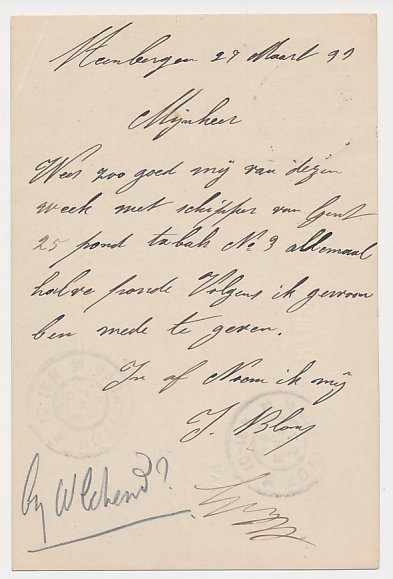 Steenbergen 27 Maart 99
Mijnheer
Wees zoo goed mij van dezen
week met schipper van Gent
25 pond tabak No 3 allemaal
halve ponde Volgens ik gewoon
ben mede te geven.
In af Noem ik mij
J. Blom